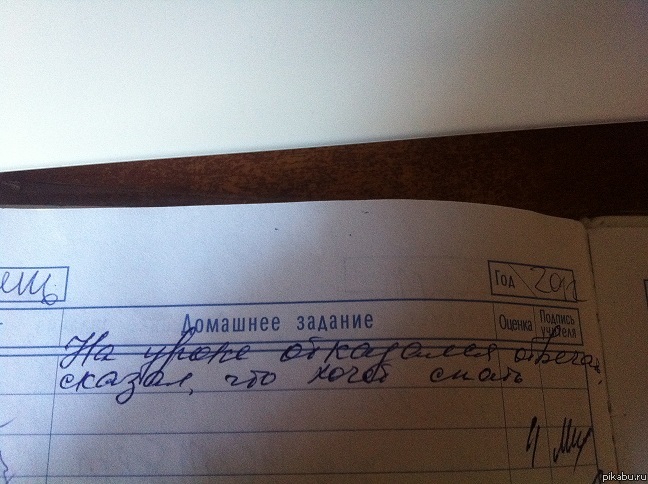 Год 201
Домашнее задание
Оценка
Подпись
учителя
На уроке отказался отвеча
сказал, что хочет спать
4
pikabu.ru